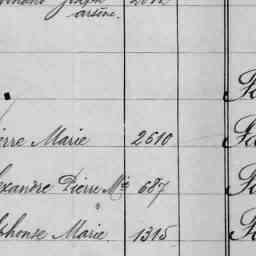 Joseph
arsène.
erre Marie 2610
exandre Pierre Mie 687
phonse Marie. 1315